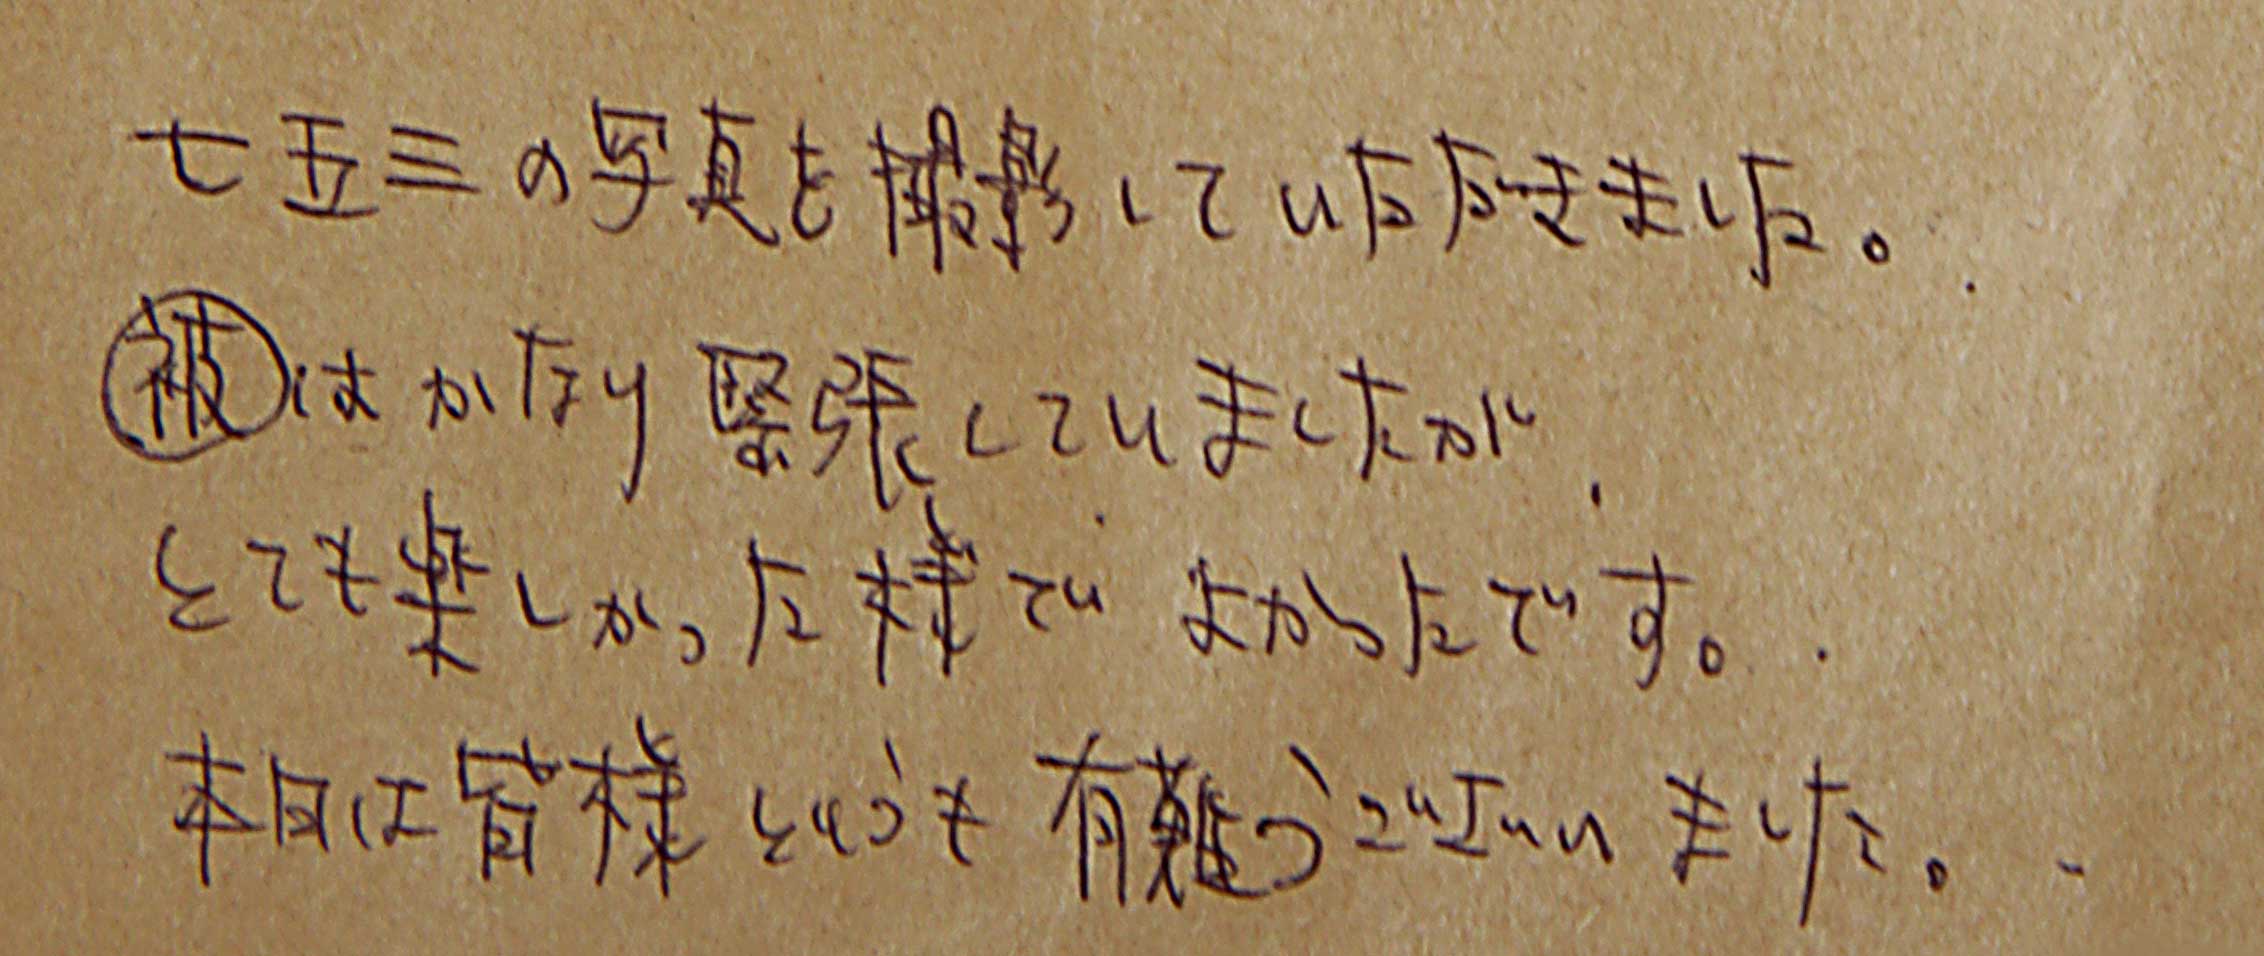 七五三の写真を撮影していただきました。
被はかなり緊張していましたが、
とても楽しかった様でよかったです。
本日は皆様どうも有難うございました。